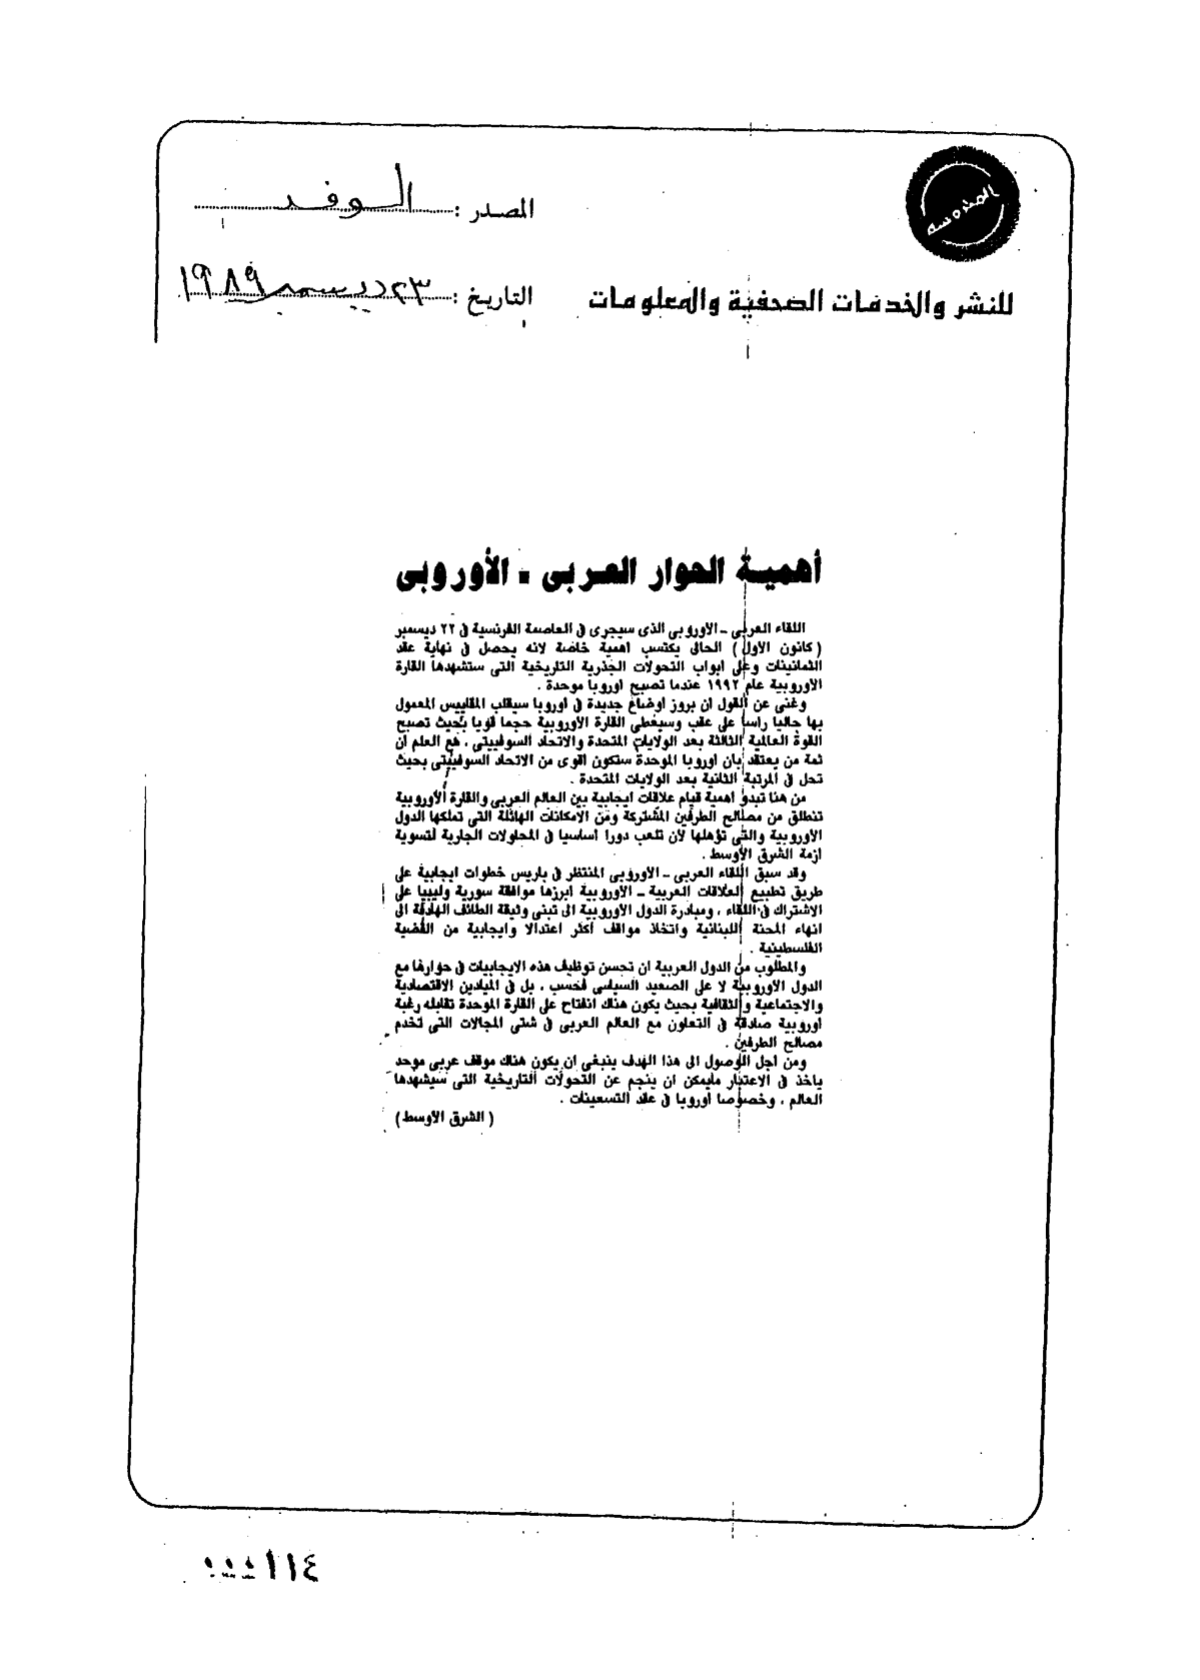 المحروسة
المصدر : الوفد
للنشر والخدمات الصحفية والمعلومات
التاريخ : ٢٣ ديسمبر ١٩٨٩
أهمية الحوار العربى - الأوروبى
اللقاء العربى - الأوروبى الذى سيجرى فى العاصمة الفرنسية فى ٢٢ ديسمبر
( كانون الأول ) الحالى يكتسب اهمية خاصة لانه يحصل فى نهاية عقد
الثمانينات وعلى ابواب التحولات الجذرية التاريخية التى ستشهدها القارة
الأوروبية عام ١٩٩٢ عندما تصبح اوروبا موحدة .
وغنى عن القول ان بروز اوضاع جديدة فى اوروبا سيقلب المقاييس المعمول
بها حاليا راسا على عقب وسيعطى القارة الأوروبية حجما قويا بحيث تصبح
القوة العالمية الثالثة بعد الولايات المتحدة والاتحاد السوفييتى ، مع العلم ان
ثمة من يعتقد بان اوروبا الموحدة ستكون اقوى من الاتحاد السوفييتى بحيث
تحل فى المرتبة الثانية بعد الولايات المتحدة .
من هنا تبدو اهمية قيام علاقات ايجابية بين العالم العربى والقارة الأوروبية
تنطلق من مصالح الطرفين المشتركة ومن الامكانات الهائلة التى تملكها الدول
الأوروبية والتى تؤهلها لأن تلعب دورا اساسيا فى المحاولات الجارية لتسوية
ازمة الشرق الأوسط .
وقد سبق اللقاء العربى - الأوروبى المنتظر فى باريس خطوات ايجابية على
طريق تطبيع العلاقات العربية - الأوروبية ابرزها موافقة سورية وليبيا على
الاشتراك فى اللقاء ، ومبادرة الدول الأوروبية الى تبنى وثيقة الطائف الهادفة الى
انهاء المحنة اللبنانية واتخاذ مواقف أكثر اعتدالا وايجابية من القضية
الفلسطينية .
والمطلوب من الدول العربية ان تحسن توظيف هذه الايجابيات فى حوارها مع
الدول الأوروبية لا على الصعيد السياسى فحسب ، بل فى الميادين الاقتصادية
والاجتماعية والثقافية بحيث يكون هناك انفتاح على القارة الموحدة تقابله رغبة
اوروبية صادقة فى التعاون مع العالم العربى فى شتى المجالات التى تخدم
مصالح الطرفين .
ومن اجل الوصول الى هذا الهدف ينبغى ان يكون هناك موقف عربى موحد
ياخذ فى الاعتبار مايمكن ان ينجم عن التحولات التاريخية التى سيشهدها
العالم ، وخصوصا أوروبا فى عقد التسعينات .
( الشرق الأوسط )